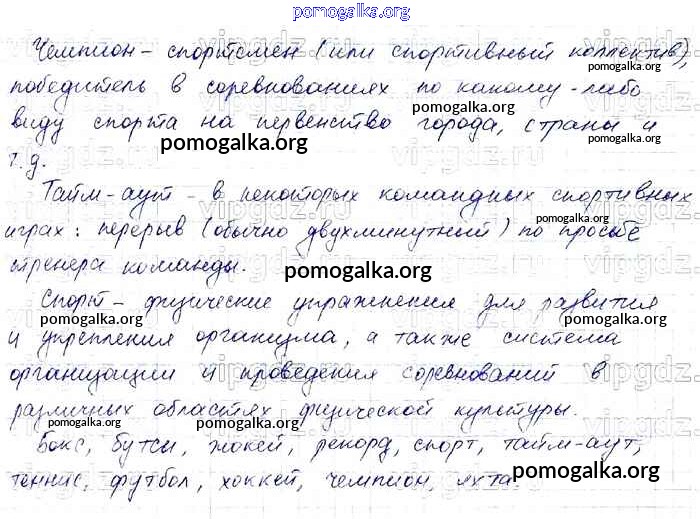 pomogalka.org
Чемпион - спортсмен (или спортивный коллектив),
pomogalka.org
победитель в соревнованиях по какому-либо
pomogalka.org
виду спорта на первенство города, страны и
pomogalka.org
т.д.
Тайм-аут - в некоторых командных спортивных
pomogalka.org
играх: перерыв (обычно двухминутный) по просьбе
тренера команды.
pomogalka.org
Спорт - физические упражнения для развития
pomogalka.org pomogalka.org
и укрепления организма, а также система
организации и проведения соревнований в
различных областях физической культуры.
pomogalka.org
Бокс, бутсы, жокей, рекорд, спорт, тайм-аут,
теннис, футбол, хоккей, чемпион, яхта.
pomogalka.org
vipgdz.ru